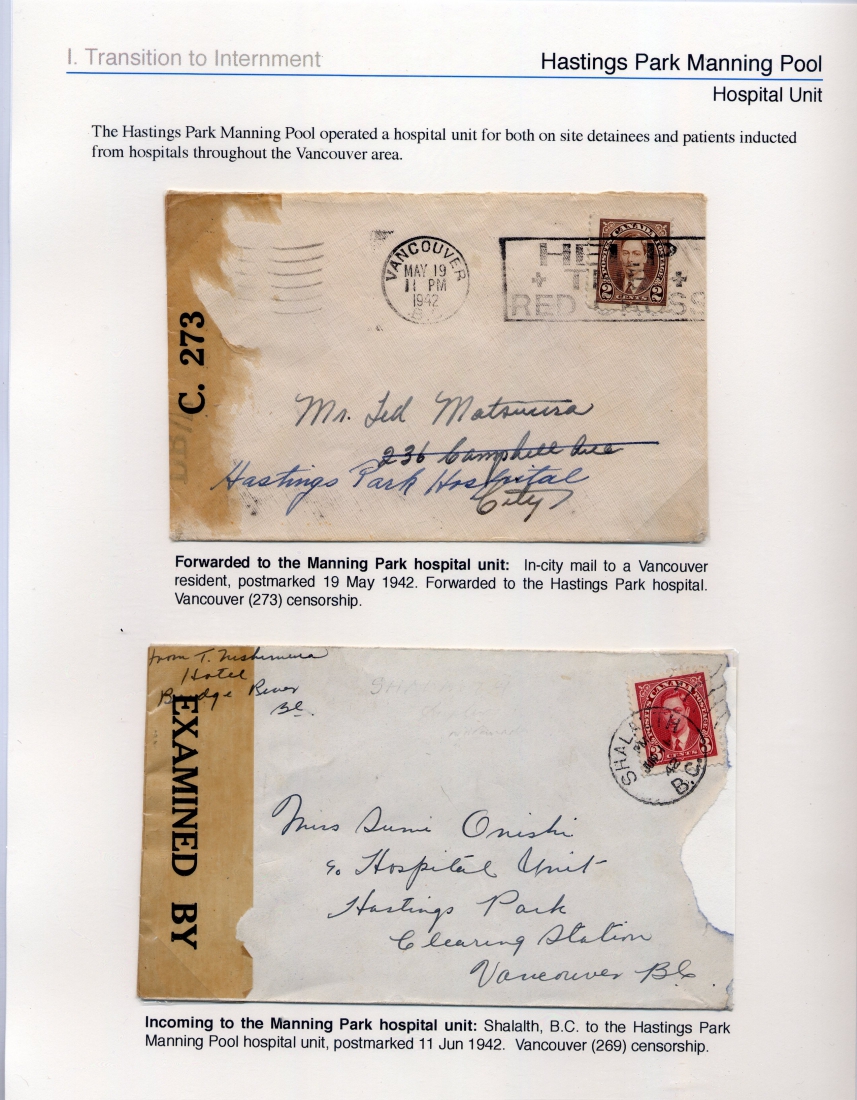 I. Transition to Internment
Hastings Park Manning Pool
Hospital Unit
The Hastings Park Manning Pool operated a hospital unit for both on site detainees and patients inducted
from hospitals throughout the Vancouver area.
C. 273
VANCOUVER
MAY 19
11 PM
1942
B.C.
CANADA
POSTES POSTAGE
2 CENTS 2
RED CROSS
Mr. Ted Matsuura
236 Campbell Ave
Hastings Park Hospital
City
Forwarded to the Manning Park hospital unit: In-city mail to a Vancouver
resident, postmarked 19 May 1942. Forwarded to the Hastings Park hospital.
Vancouver (273) censorship.
from T. Nishimura
Hotel
Bridge River
BC.
EXAMINED BY
CANADA
POSTES POSTAGE
3 CENTS 3
SHALALTH
B.C.
Miss Sumi Onishi
c/o Hospital Unit
Hastings Park
Clearing Station
Vancouver BC.
Incoming to the Manning Park hospital unit: Shalalth, B.C. to the Hastings Park
Manning Pool hospital unit, postmarked 11 Jun 1942. Vancouver (269) censorship.